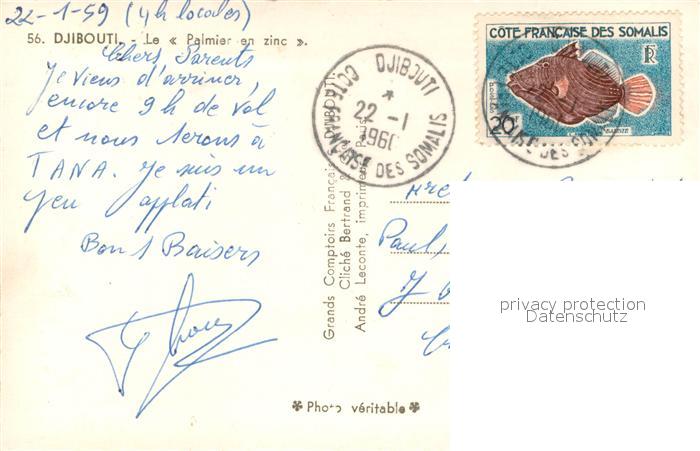 22-1-59 (4h locales)
56. DJIBOUTI. - Le « Palmier en zinc ».
Chers Parents
Je viens d'arriver,
encore 9h de vol
et nous serons à
TANA. Je suis un
peu applati
Bons Baisers
Grands Comptoirs Français
Cliché Bertrand &
André Leconte, imprimeur Paris
✽ Photo véritable ✽
DJIBOUTI
22 -1
1960
COTE FRANÇAISE DES SOMALIS
CÔTE FRANÇAISE DES SOMALIS
RF
20F
Paul,
privacy protection
Datenschutz